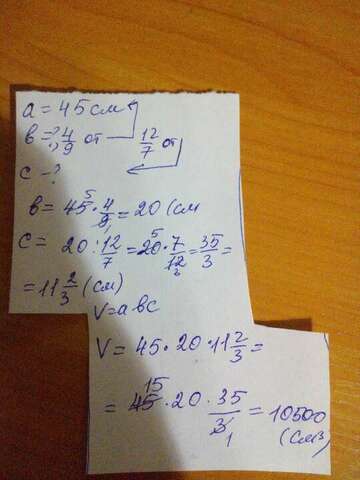 a = 45 см
в = ? 4/9 от 12/7 от
с - ?
в = 45 5 · 4/9 1 = 20 (см
с = 20 : 12/7 = 20 5 · 7/12 3 = 35/3 =
= 11 2/3 (см)
V = a в с
V = 45 · 20 · 11 2/3 =
= 45 15 · 20 · 35/3 1 = 10500
(см3)